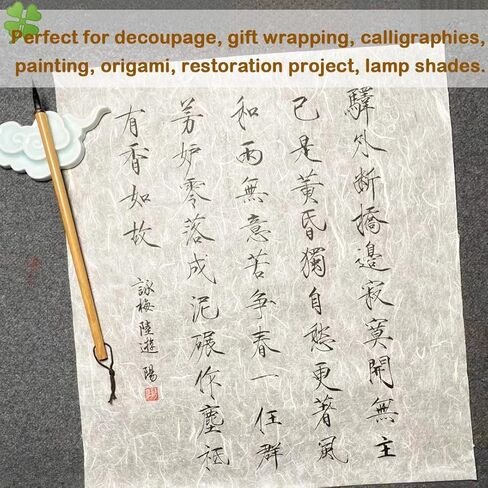 Perfect for decoupage, gift wrapping, calligraphies,
painting, origami, restoration project, lamp shades.
驛外断橋邊寂寞開無主
已是黄昏獨自愁更著風
和雨無意苦争春一任群
芳妒零落成泥碾作塵祗
有香如故
詠梅陸遊 陽